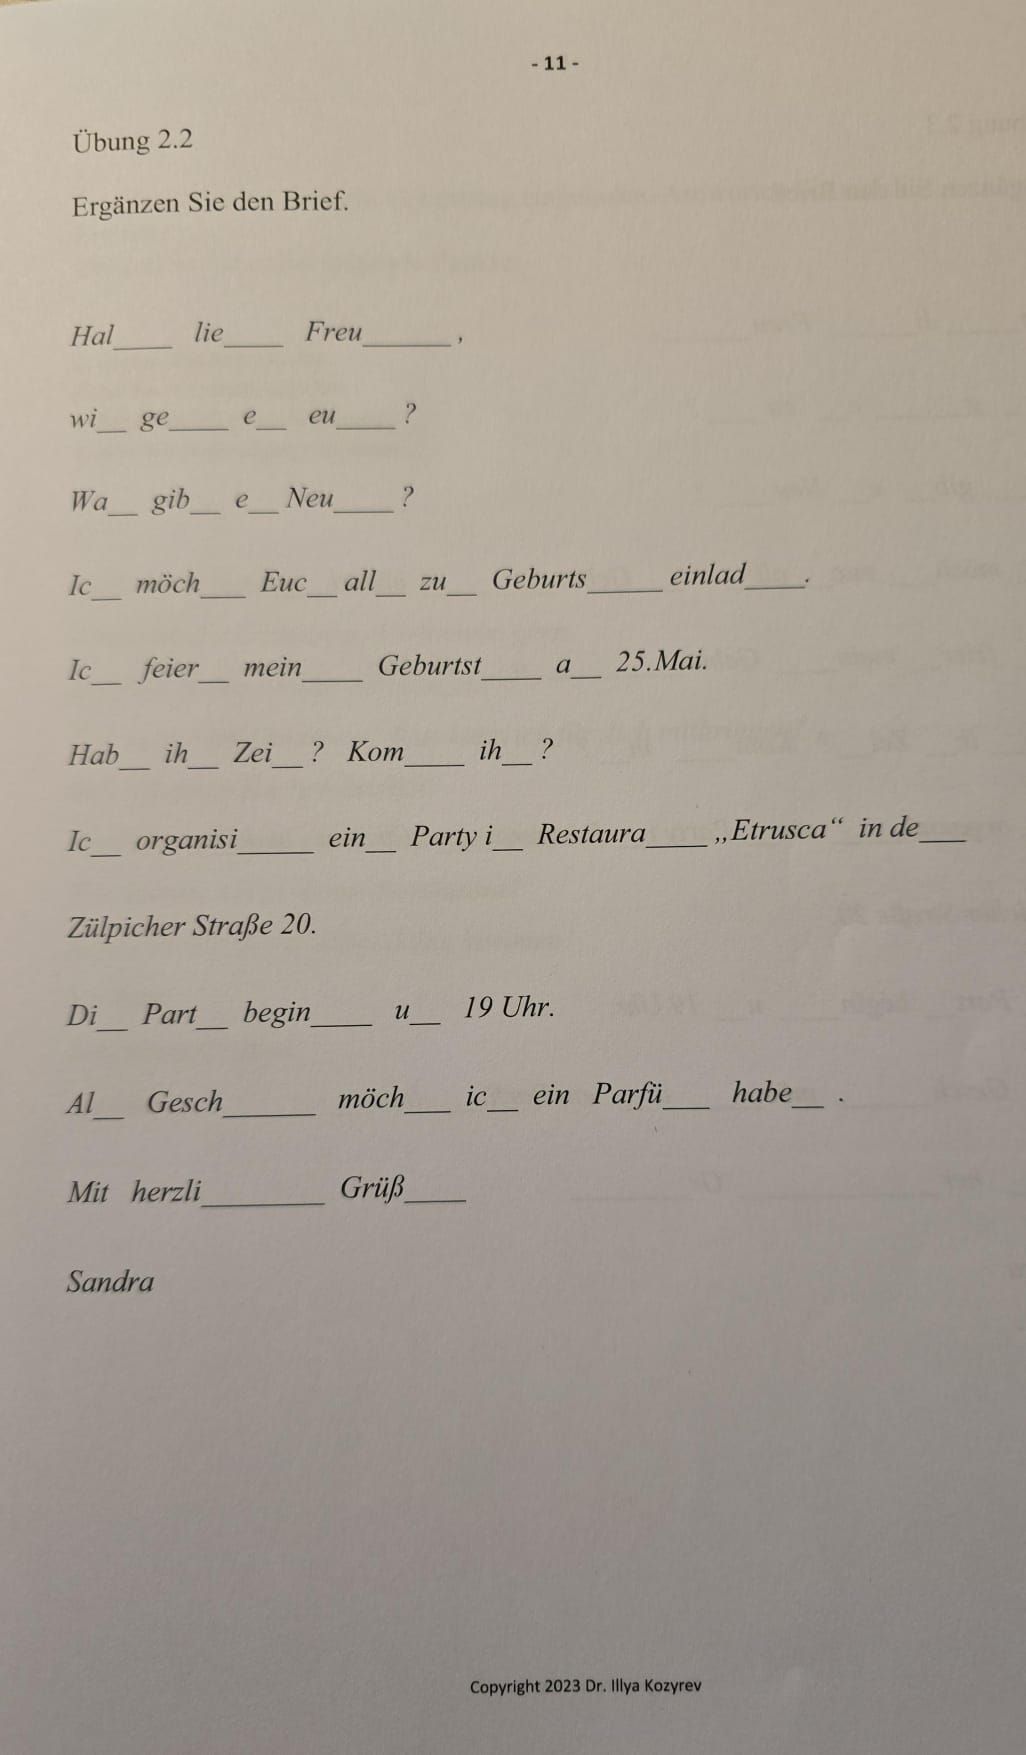 - 11 -
Übung 2.2
Ergänzen Sie den Brief.
Hal____ lie____ Freu______,
wi__ ge____ e__ eu____?
Wa__ gib__ e__ Neu____?
Ic__ möch___ Euc__ all__ zu__ Geburts_____ einlad____.
Ic__ feier__ mein____ Geburtst____ a__ 25.Mai.
Hab__ ih__ Zei__? Kom____ ih__?
Ic__ organisi_____ ein__ Party i__ Restaura____ „Etrusca“ in de___
Zülpicher Straße 20.
Di__ Part__ begin____ u__ 19 Uhr.
Al__ Gesch______ möch___ ic__ ein Parfü___ habe__ .
Mit herzli________ Grüß____
Sandra
Copyright 2023 Dr. Illya Kozyrev